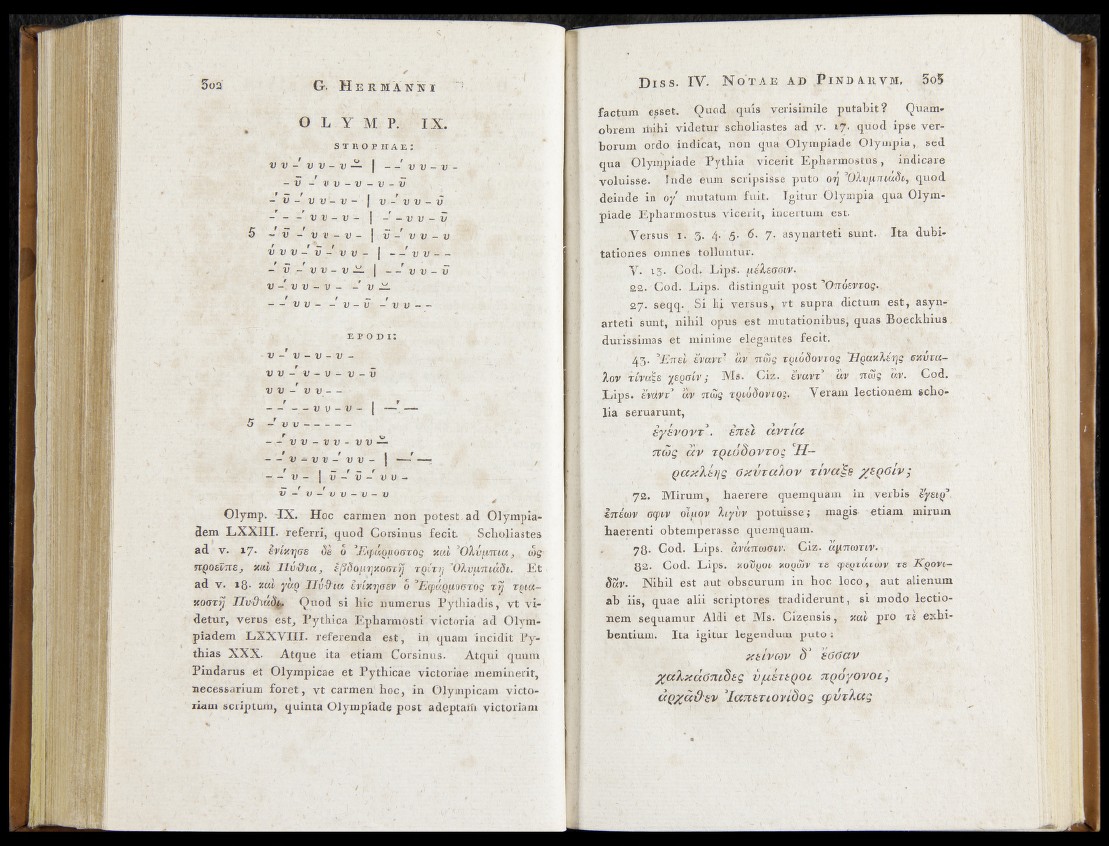 302 G. HERMANNI
OLYMP. IX.
STROPHAE:
5
EPODI:
5
Olymp. IX. Hoc carmen non potest ad Olympia-
dem LXXIII. referri, quod Corsinus fecit. Scholiastes
ad v. 17. ἐνίκησε δὲ ὁ Ἐφάρμοστος καὶ Ὀλύμπια, ὡς
προεῖπε, καὶ Πύθια, ἑβδομηκοστῇ τρίτῃ Ὀλυμπιάδι. Et
ad v. 18. καὶ γὰρ Πύθια ἐνίκησεν ὁ Ἐφάρμοστος τῇ τρια-
κοστῇ Πυθιάδι. Quod si hic numerus Pythiadis, vt vi-
detur, verus est, Pythica Epharmosti victoria ad Olym-
piadem LXXVIII. referenda est, in quam incidit Py-
thias XXX. Atque ita etiam Corsinus. Atqui quum
Pindarus et Olympicae et Pythicae victoriae meminerit,
necessarium foret, vt carmen hoc, in Olympicam victo-
riam scriptum, quinta Olympiade post adeptam victoriam
DISS. IV. NOTAE AD PINDARVM. 303
factum esset. Quod quis verisimile putabit? Quam-
obrem mihi videtur scholiastes ad v. 17. quod ipse ver-
borum ordo indicat, non qua Olympiade Olympia, sed
qua Olympiade Pythia vicerit Epharmostus, indicare
voluisse. Inde eum scripsisse puto οή Ὀλυμπιάδι, quod
deinde in ογ́ mutatum fuit. Igitur Olympia qua Olym-
piade Epharmostus vicerit, incertum est.
Versus 1. 3. 4. 5. 6. 7. asynarteti sunt. Ita dubi-
tationes omnes tolluntur.
V. 13. Cod. Lips. μέλεσσιν.
22. Cod. Lips. distinguit post Ὀπόεντος.
27. seqq. Si hi versus, vt supra dictum est, asyn-
arteti sunt, nihil opus est mutationibus, quas Boeckhius
durissimas et minime elegantes fecit.
43. Ἐπεὶ ἔναντ’ ἂν πῶς τριόδοντος Ἡρακλέης σκύτα-
λον τίναξε χερσίν; Ms. Ciz. ἔναντ’ ἂν πῶς ἄν. Cod.
Lips. ἐνάντ’ ἂν πῶς τριόδοντος. Veram lectionem scho-
lia seruarunt,
ἐγένοντ’. ἐπεὶ ἀντία
πῶς ἂν τριόδοντος Ἡ-
ρακλέης σκύταλον τίναξε χερσίν;
72. Mirum, haerere quemquam in verbis ἔγειρ’
ἐπέων σφιν οἶμον λιγὺν potuisse; magis etiam mirum
haerenti obtemperasse quemquam.
78. Cod. Lips. ἀνάπωσιν. Ciz. ἄμπωτιν.
82. Cod. Lips. κοῦροι κορῶν τε φερτάτων τε Κρονι-
δᾶν. Nihil est aut obscurum in hoc loco, aut alienum
ab iis, quae alii scriptores tradiderunt, si modo lectio-
nem sequamur Aldi et Ms. Cizensis, καὶ pro τὲ exhi-
bentium. Ita igitur legendum puto:
κείνων δ’ ἔσσαν
χαλκάσπιδες ὑμέτεροι πρόγονοι,
ἀρχᾶθεν Ἰαπετιονίδος φύτλας